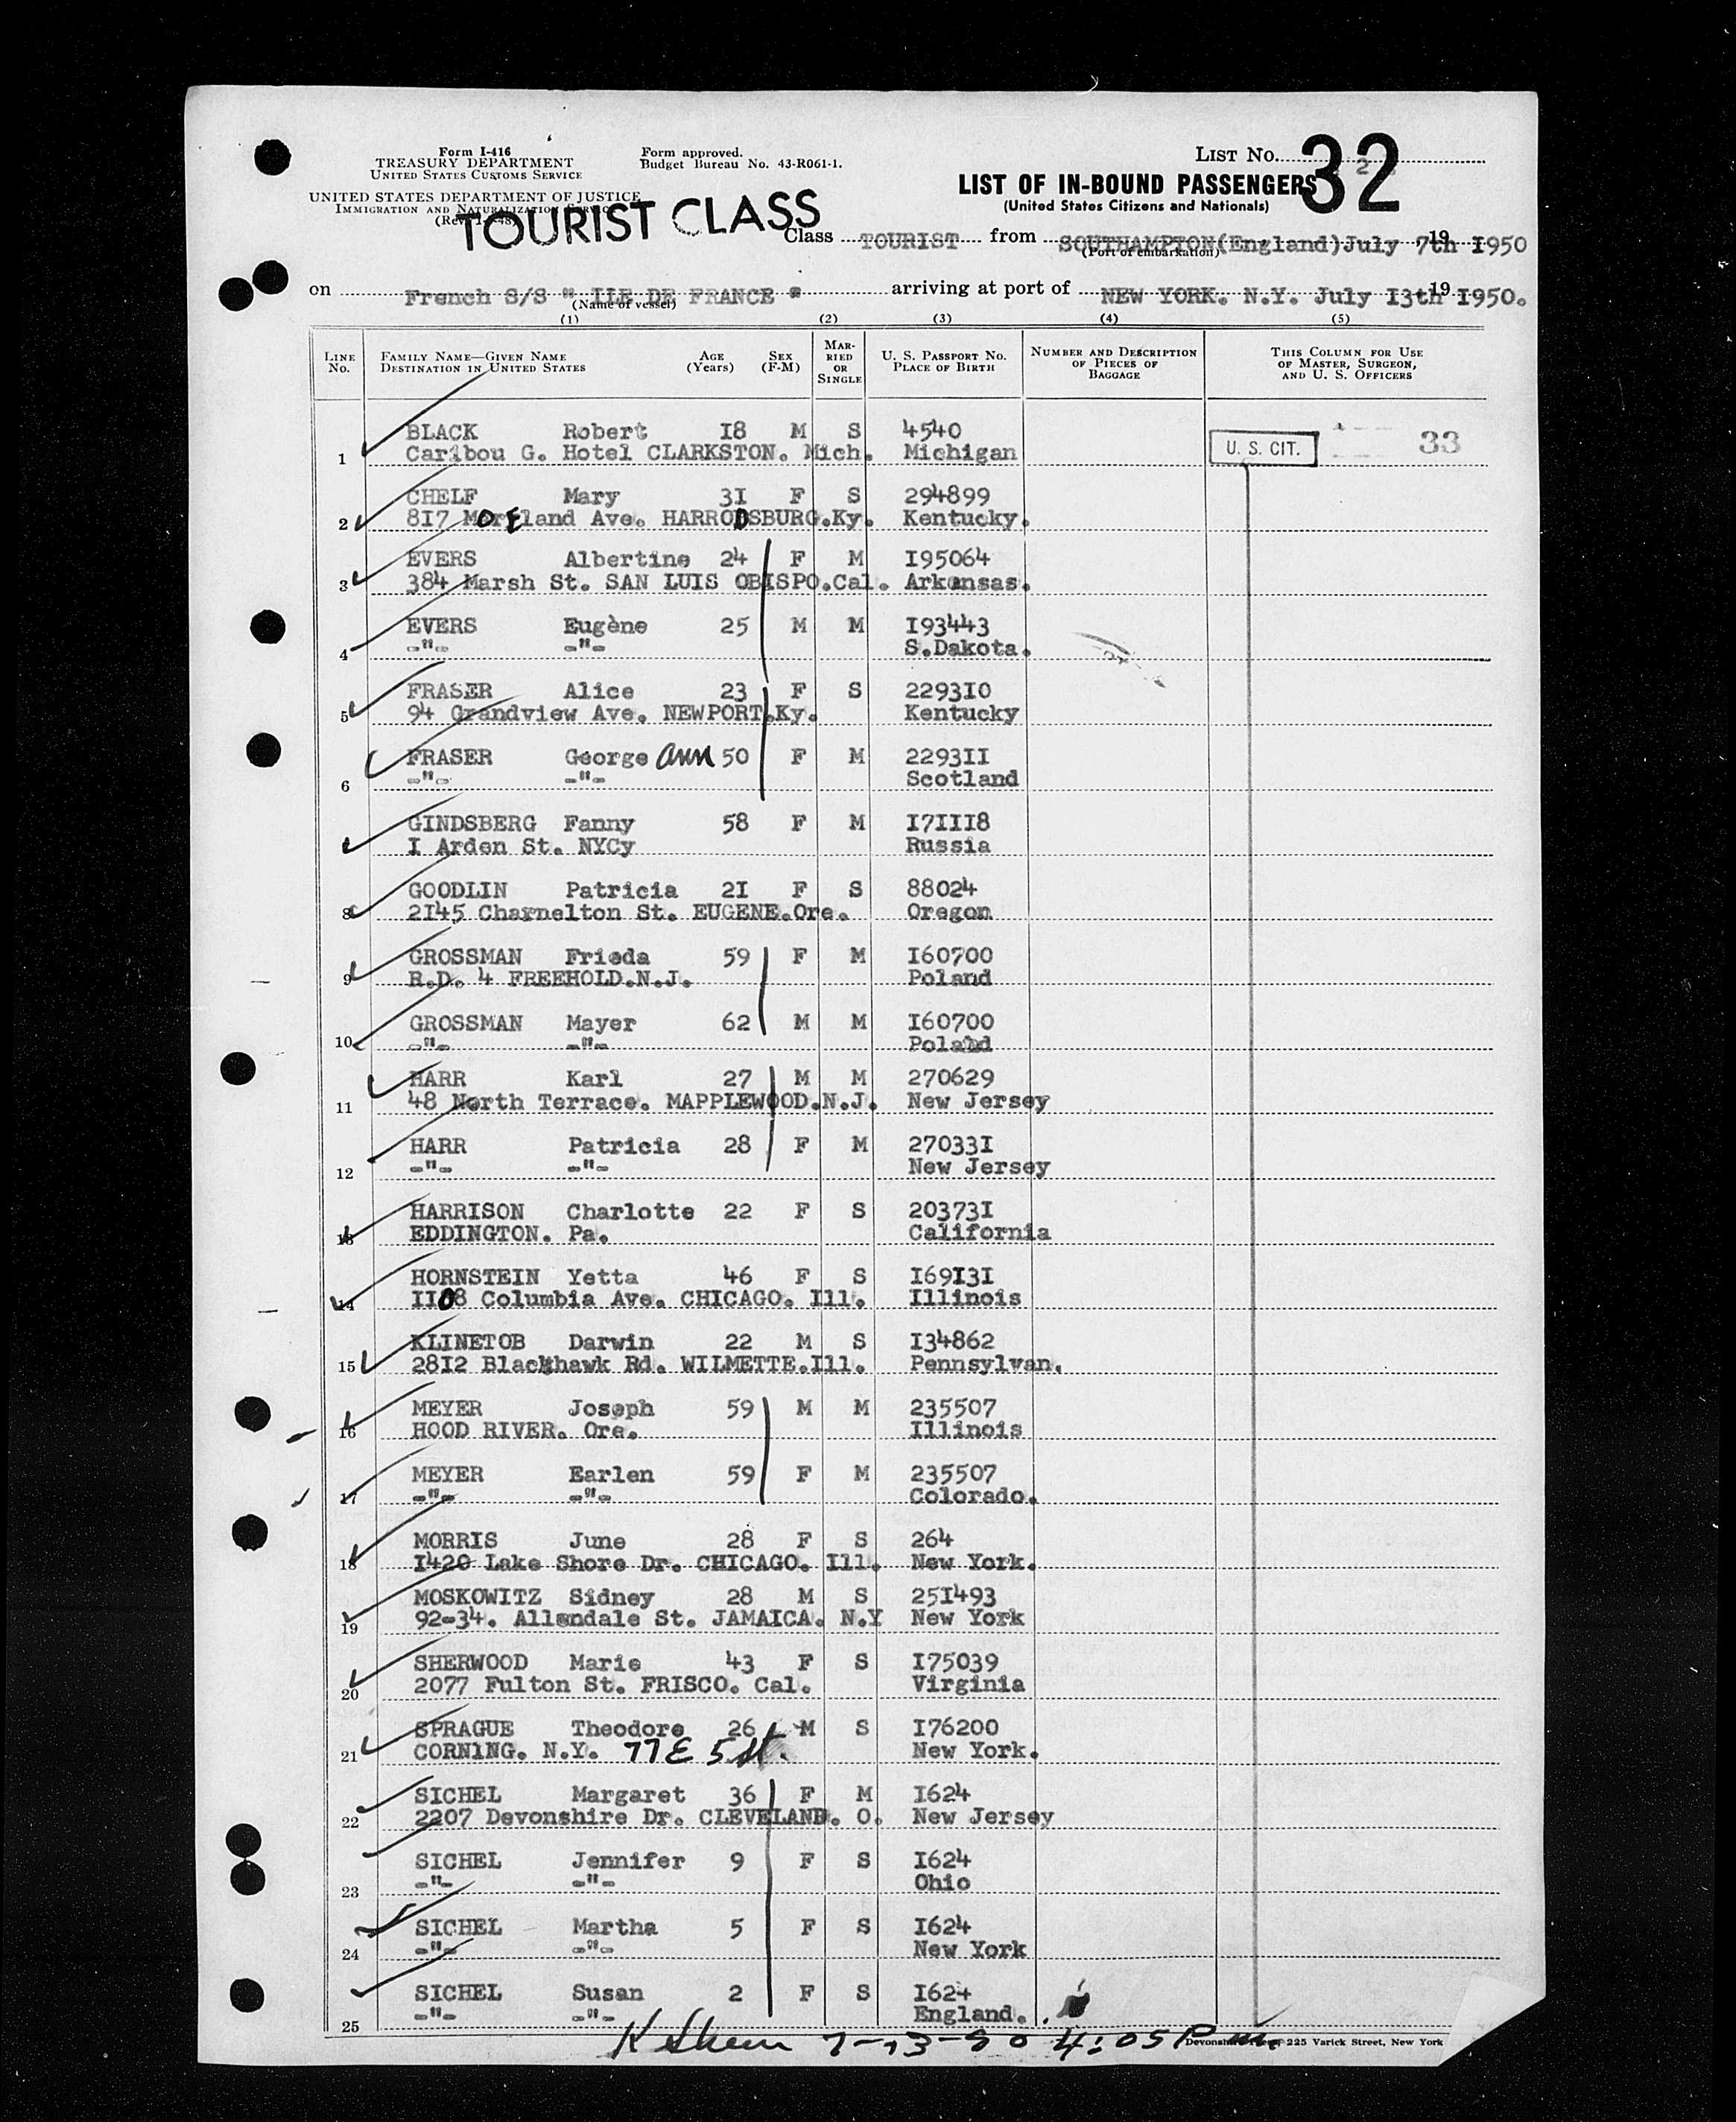 Form I-416
TREASURY DEPARTMENT
UNITED STATES CUSTOMS SERVICE
UNITED STATES DEPARTMENT OF JUSTICE
IMMIGRATION AND NATURALIZATION SERVICE
Form approved.
Budget Bureau No. 43-R061-1.
LIST No. 32
LIST OF IN-BOUND PASSENGERS
(United States Citizens and Nationals)
TOURIST CLASS
Class TOURIST from SOUTHAMPTON(England)July 7th 19 I950
(Port of embarkation)
on French S/S " ILE DE FRANCE " arriving at port of NEW YORK. N.Y. July I3th 19 I950.
(Name of vessel)
(1) (2) (3) (4) (5)
LINE No. FAMILY NAME—GIVEN NAME DESTINATION IN UNITED STATES AGE (Years) SEX (F-M) MARRIED OR SINGLE U. S. PASSPORT NO. PLACE OF BIRTH NUMBER AND DESCRIPTION OF PIECES OF BAGGAGE THIS COLUMN FOR USE OF MASTER, SURGEON, AND U. S. OFFICERS
BLACK Robert I8 M S 4540 U. S. CIT. 33
1 Caribou G. Hotel CLARKSTON. Mich. Michigan
CHELF Mary 3I F S 294899
2 8I7 Moreland Ave. HARRODSBURG.Ky. Kentucky.
EVERS Albertine 24 F M I95064
3 384 Marsh St. SAN LUIS OBISPO.Cal. Arkansas.
EVERS Eugène 25 M M I93443
4 -"- -"- S.Dakota.
FRASER Alice 23 F S 2293I0
5 94 Grandview Ave. NEWPORT.Ky. Kentucky
FRASER George Ann 50 F M 2293II
6 -"- -"- Scotland
GINDSBERG Fanny 58 F M I7III8
I Arden St. NYCy Russia
GOODLIN Patricia 2I F S 88024
8 2I45 Charnelton St. EUGENE.Ore. Oregon
GROSSMAN Frieda 59 F M I60700
9 R.D. 4 FREEHOLD.N.J. Poland
GROSSMAN Mayer 62 M M I60700
10 -"- -"- Poland
HARR Karl 27 M M 270629
11 48 North Terrace. MAPPLEWOOD.N.J. New Jersey
HARR Patricia 28 F M 27033I
12 -"- -"- New Jersey
HARRISON Charlotte 22 F S 20373I
13 EDDINGTON. Pa. California
HORNSTEIN Yetta 46 F S I69I3I
14 II08 Columbia Ave. CHICAGO. Ill. Illinois
KLINETOB Darwin 22 M S I34862
15 28I2 Blackhawk Rd. WILMETTE.Ill. Pennsylvan.
MEYER Joseph 59 M M 235507
16 HOOD RIVER. Ore. Illinois
MEYER Earlen 59 F M 235507
17 -"- -"- Colorado.
MORRIS June 28 F S 264
18 I420 Lake Shore Dr. CHICAGO. Ill. New York.
MOSKOWITZ Sidney 28 M S 25I493
19 92-34. Allendale St. JAMAICA. N.Y New York
SHERWOOD Marie 43 F S I75039
20 2077 Fulton St. FRISCO. Cal. Virginia
SPRAGUE Theodore 26 M S I76200
21 CORNING. N.Y. 77 E 5 St. New York.
SICHEL Margaret 36 F M I624
22 2207 Devonshire Dr. CLEVELAND. O. New Jersey
SICHEL Jennifer 9 F S I624
23 -"- -"- Ohio
SICHEL Martha 5 F S I624
24 -"- -"- New York
SICHEL Susan 2 F S I624
25 -"- -"- England.
7-13-50 4:05 P.m.
225 Varick Street, New York